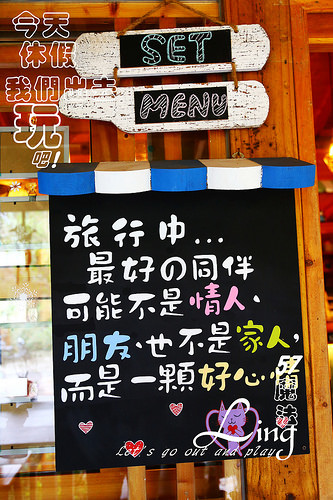 今天
休假
我們出去
玩
吧!
SET
MENU
旅行中...
最好の同伴
可能不是情人、
朋友、也不是家人,
而是一顆好心情
魔法
Ling
Let's go out and play